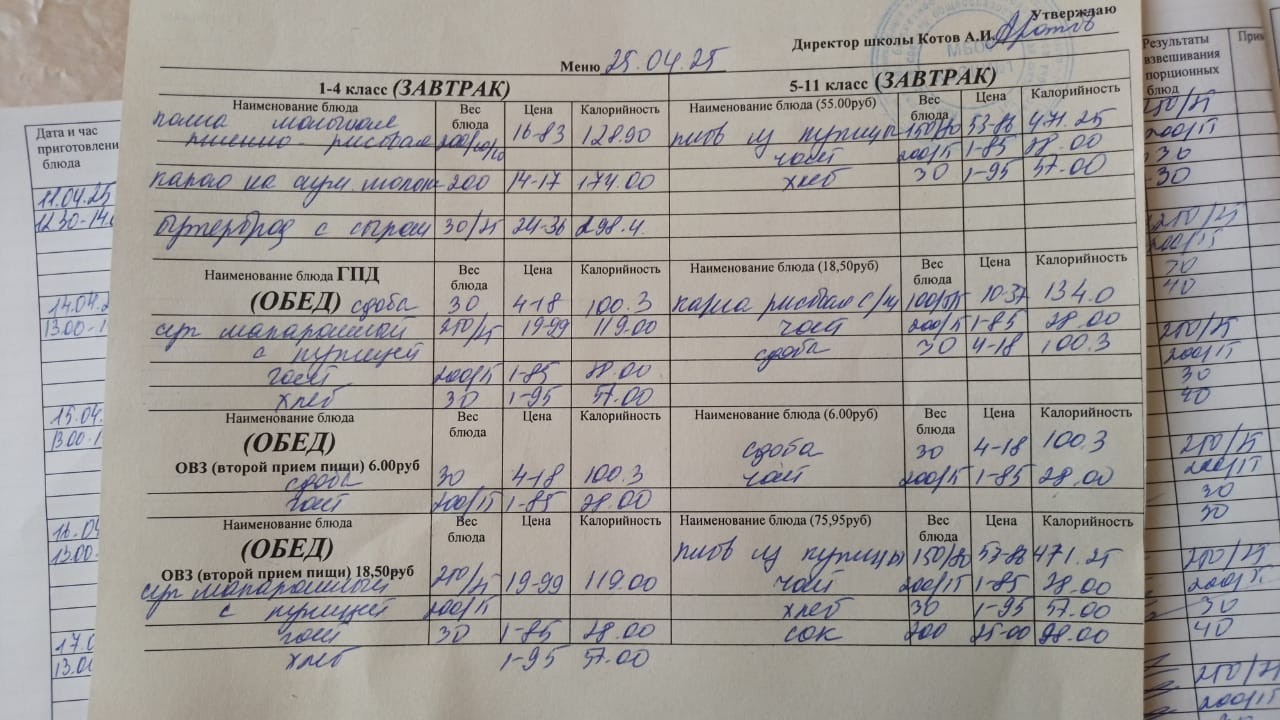 Утверждаю
Директор школы Котов А.И.
Меню 25.04.25
1-4 класс (ЗАВТРАК)
5-11 класс (ЗАВТРАК)
Наименование блюда Вес блюда Цена Калорийность
каша молочная
пшенно-рисовая 16-83 128.90
какао на сгущ. молоке 200 14-17 174.00
бутерброд с сыром 30/15 24-36 298.4
Наименование блюда (55.00руб) Вес блюда Цена Калорийность
плов из курицы 150/80 53-86 471.25
чай 200/15 1-85 28.00
хлеб 30 1-95 57.00
Наименование блюда ГПД Вес блюда Цена Калорийность
(ОБЕД) сдоба 30 4-18 100.3
суп макаронный 250/25 19-99 119.00
с курицей
чай 200/15 1-85 28.00
хлеб 30 1-95 57.00
Наименование блюда (18,50руб) Вес блюда Цена Калорийность
каша рисовая с/м 10-37 134.0
чай 200/15 1-85 28.00
сдоба 30 4-18 100.3
Наименование блюда Вес блюда Цена Калорийность
(ОБЕД)
ОВЗ (второй прием пищи) 6.00руб
сдоба 30 4-18 100.3
чай 200/15 1-85 28.00
Наименование блюда (6.00руб) Вес блюда Цена Калорийность
сдоба 30 4-18 100.3
чай 200/15 1-85 28.00
Наименование блюда Вес блюда Цена Калорийность
(ОБЕД)
ОВЗ (второй прием пищи) 18,50руб
суп макаронный 250/25 19-99 119.00
с курицей 200/15
чай 30 1-85 28.00
хлеб 1-95 57.00
Наименование блюда (75,95руб) Вес блюда Цена Калорийность
плов из курицы 150/80 471.25
чай 200/15 1-85 28.00
хлеб 30 1-95 57.00
сок 200 25-00 98.00
Дата и час
приготовлени
блюда
11.04.25
14.04.2
13.00-1
15.04.
13.00-1
16.04
13.00-
17.0
13.00
Результаты
взвешивания
порционных
блюд
Прим